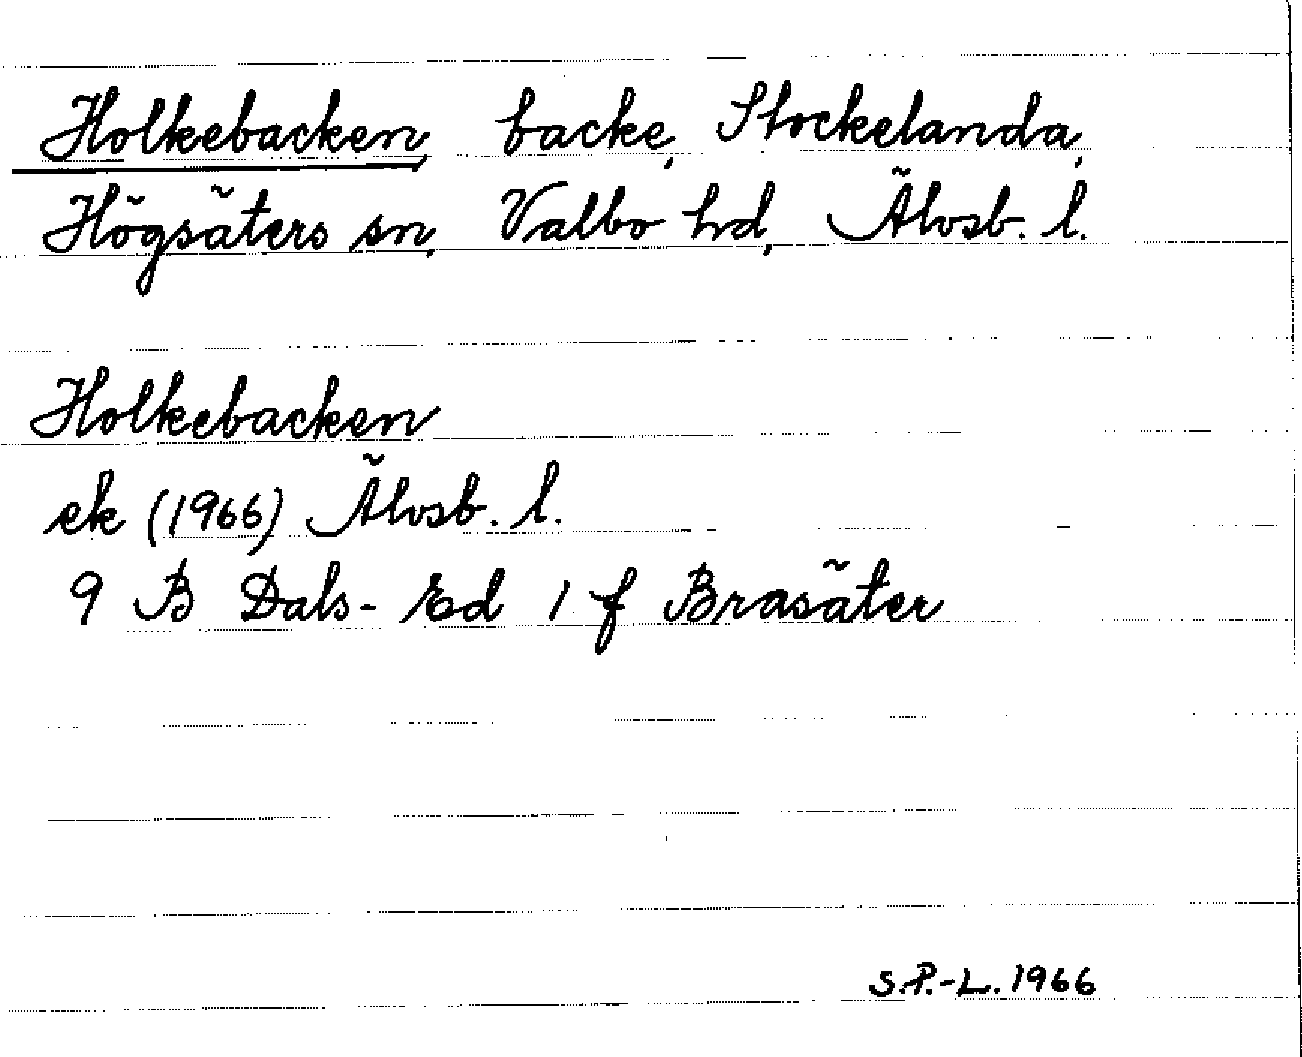 Holkebacken, backe, Stockelanda,
Högsäters sn, Valbo hd, Älvsb. l.
Holkebacken
ek (1966) Älvsb. l.
9 B Dals-Ed 1 f Brasäter
S.P.-L. 1966